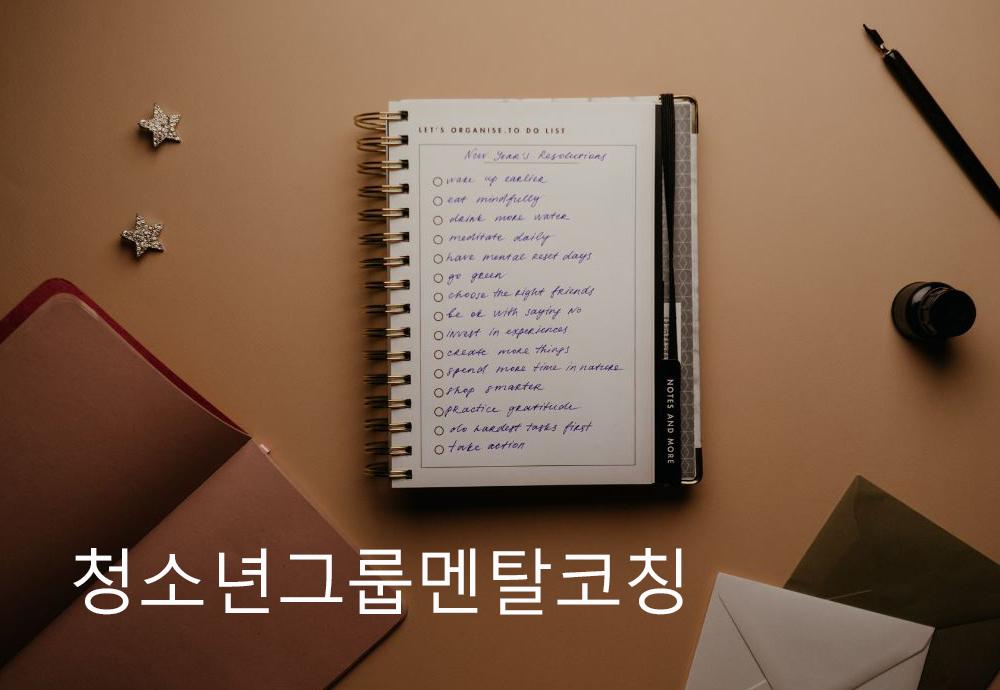 LET'S ORGANISE.TO DO LIST
New Year's Resolutions
wake up earlier
eat mindfully
drink more water
meditate daily
have mental reset days
go green
choose the right friends
be ok with saying no
invest in experiences
create more things
spend more time in nature
shop smarter
practice gratitude
do hardest tasks first
take action
NOTES AND MORE
청소년그룹멘탈코칭